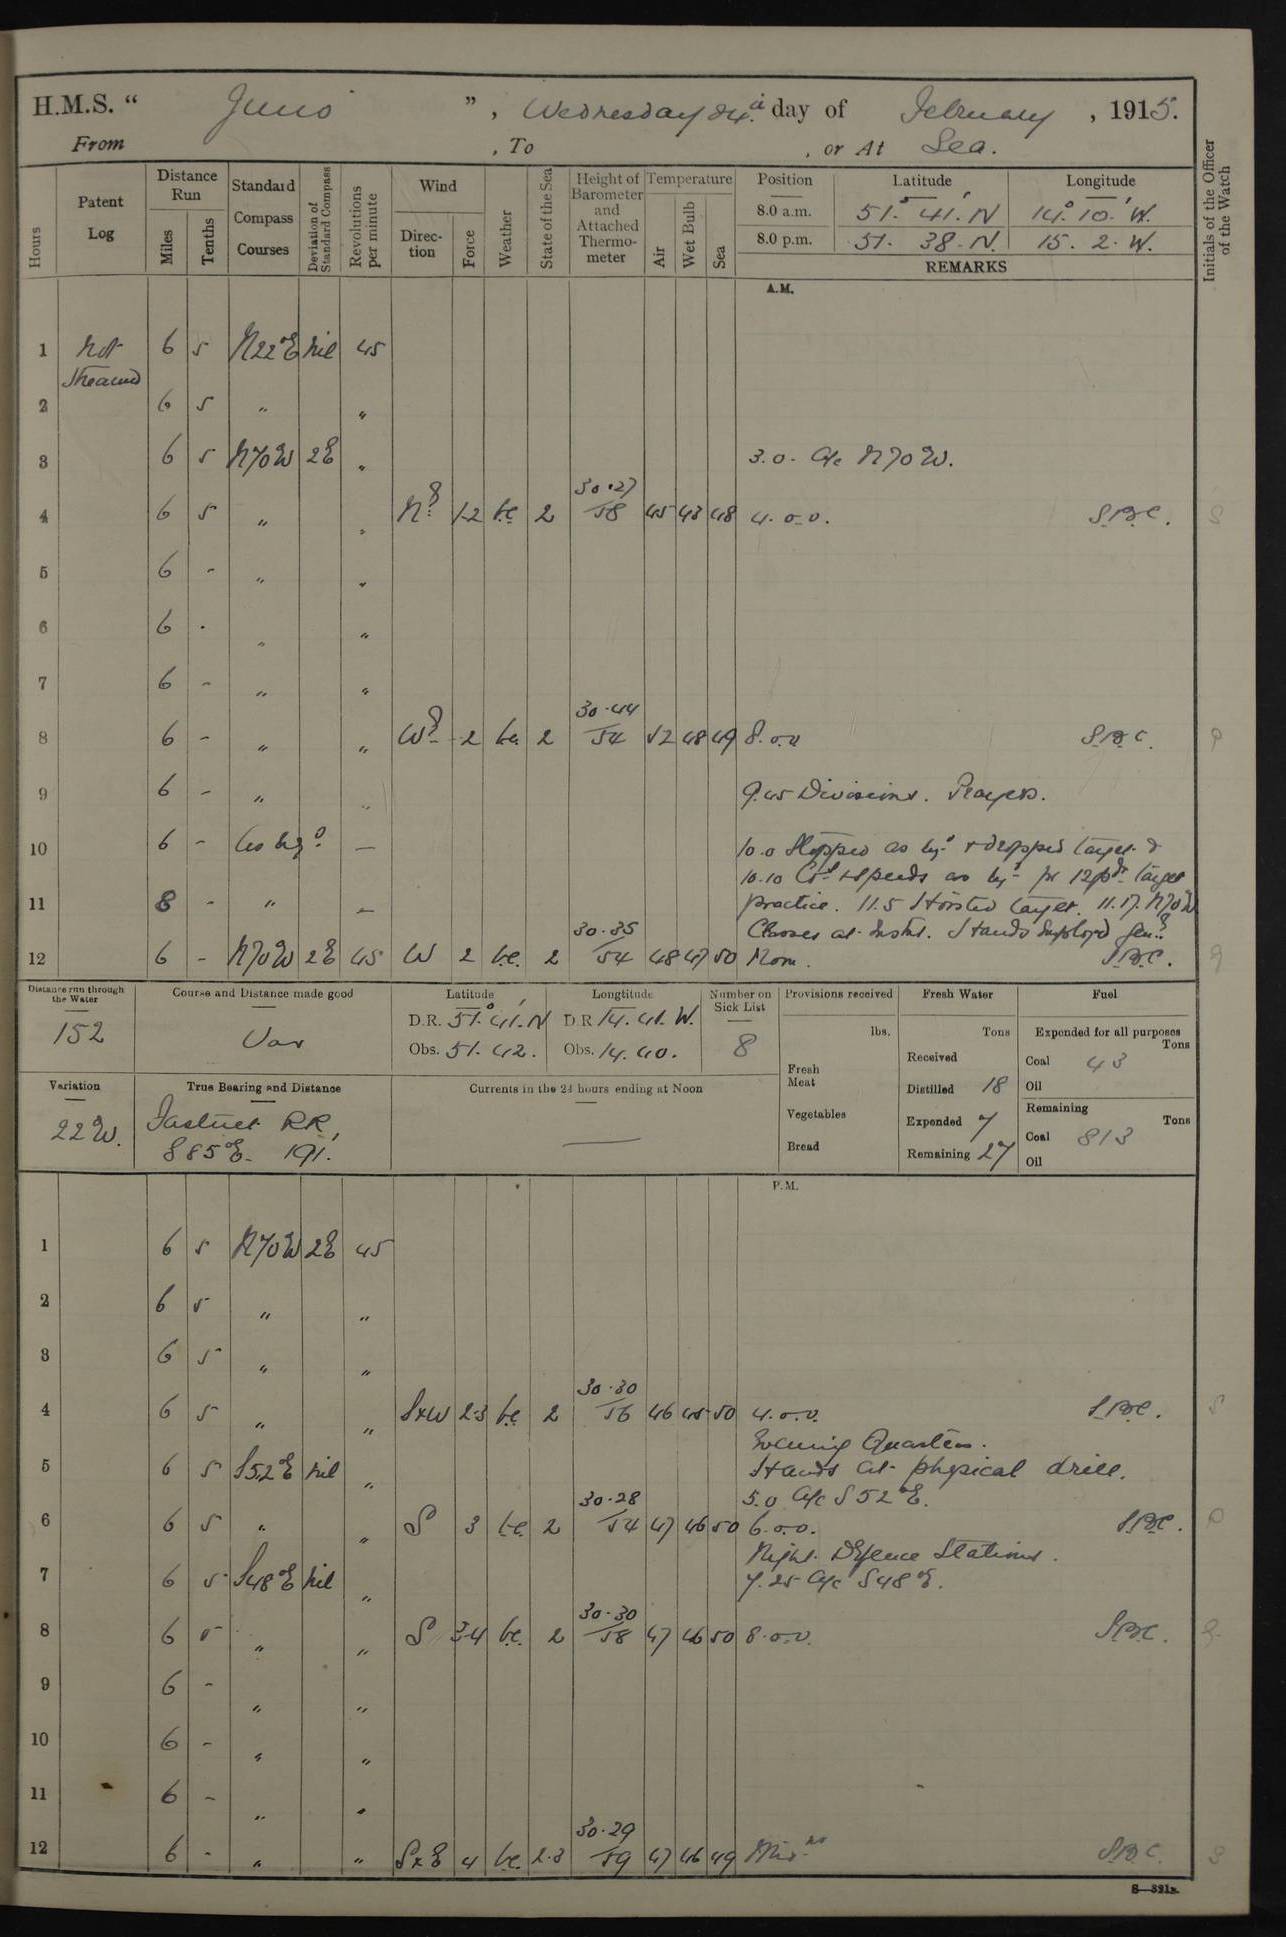 H.M.S. “ Juno ” , Wednesday 24th day of February , 1915.
From , To , or At Sea.
Hours
Patent Log
Distance Run
Miles
Tenths
Standard Compass Courses
Deviation of Standard Compass
Revolutions per minute
Wind
Direction
Force
Weather
State of the Sea
Height of Barometer and Attached Thermometer
Temperature
Air
Wet Bulb
Sea
Position Latitude Longitude
8.0 a.m. 51° 41' N 14° 10' W.
8.0 p.m. 51. 38. N. 15. 2. W.
REMARKS
Initials of the Officer of the Watch
A.M.
1 Not Streamed 6 5 N22°E Nil 45
2 6 5 " "
3 6 5 N70W 2E " 3.0. A/c N70W.
4 6 5 " " 1-2 bc 2 30.27/58 45 43 48 4.0.0.
5 6 - " "
6 6 . " "
7 6 - " "
8 6 - " " 2 bc 2 30.44/54 52 48 49 8.0.0
9 6 - " " 9.45 Divisions. Prayers.
10 6 - As req. — 10.0 Stopped as req. & dropped target &
10.10 Co. & speeds as req. for 12pdr target
11 8 - " — practice. 11.5 Hoisted target. 11.17. N70W
Classes at Instn. Hands employed
12 6 - N70W 2E 45 W 2 bc 2 30.35/54 48 47 50 Noon.
Distance run through the Water
152
Course and Distance made good
Var
Latitude
D.R. 51° 41' N
Obs. 51. 42.
Longtitude
D.R 14. 41. W.
Obs. 14. 40.
Number on Sick List
8
Provisions received
lbs.
Fresh Meat
Vegetables
Bread
Fresh Water
Tons
Received
Distilled 18
Expended 7
Remaining 27
Fuel
Expended for all purposes
Tons
Coal 43
Oil
Remaining
Tons
Coal 813
Oil
Variation
22W.
True Bearing and Distance
Fastnet RK,
S85°E. 191.
Currents in the 24 hours ending at Noon
—
P.M.
1 6 5 N70W 2E 45
2 6 5 " "
3 6 5 " "
4 6 5 " " SxW 2-3 bc 2 30.30/56 46 45 50 4.0.0.
Evening Quarters.
5 6 5 S52°E Nil " Hands at physical drill.
5.0 A/c S52°E.
6 6 5 " " S 3 bc 2 30.28/54 47 46 50 6.0.0.
Night Defence Stations.
7 6 5 S48°E Nil " 7.25 A/c S48°E.
8 6 5 " " S 3-4 bc 2 30.30/58 47 46 50 8.0.0.
9 6 - " "
10 6 - " "
11 6 - " "
12 6 - " " SxE 4 bc 2.3 30.29/59 47 46 49
S—321B.